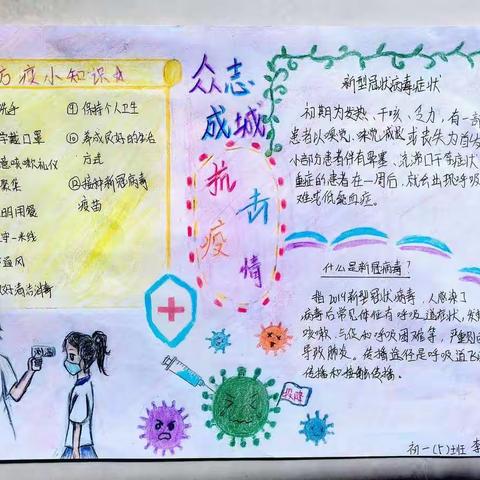 防疫小知识
洗手
学戴口罩
意咳嗽礼仪
聚集
守一米线
通风
⑨保持个人卫生
⑩养成良好的生活
方式
⑪接种新冠病毒
疫苗
众志
成城
抗击
疫情
新型冠状病毒症状
初期为发热、干咳、乏力,有一部
患者以嗅觉、味觉减退或丧失为首发
小部分患者伴有鼻塞、流涕
重症的患者在一周后,就会出现呼吸
难或低氧血症。
什么是新冠病毒?
指2019新型冠状病毒,人感染了
病毒后常见体征有呼吸道症状,发
咳嗽、气促和呼吸困难等,严重
导致肺炎。传播途径是呼吸道飞
传播和接触传播。
投降
初一(5)班 李